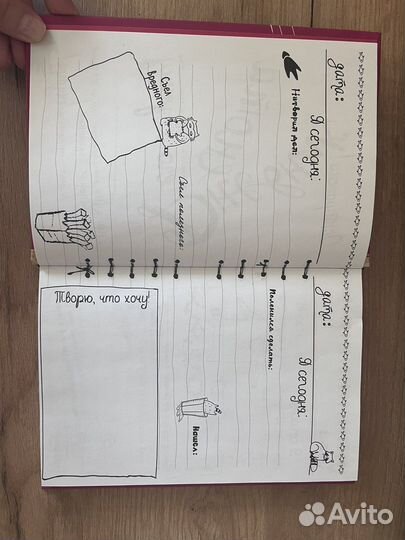 дата:
Я сегодня:
Натворил дел:
Съел вредного:
Съел полезного:
дата:
Я сегодня:
Поленился сделать:
Нашел:
Творю, что хочу!
Avito